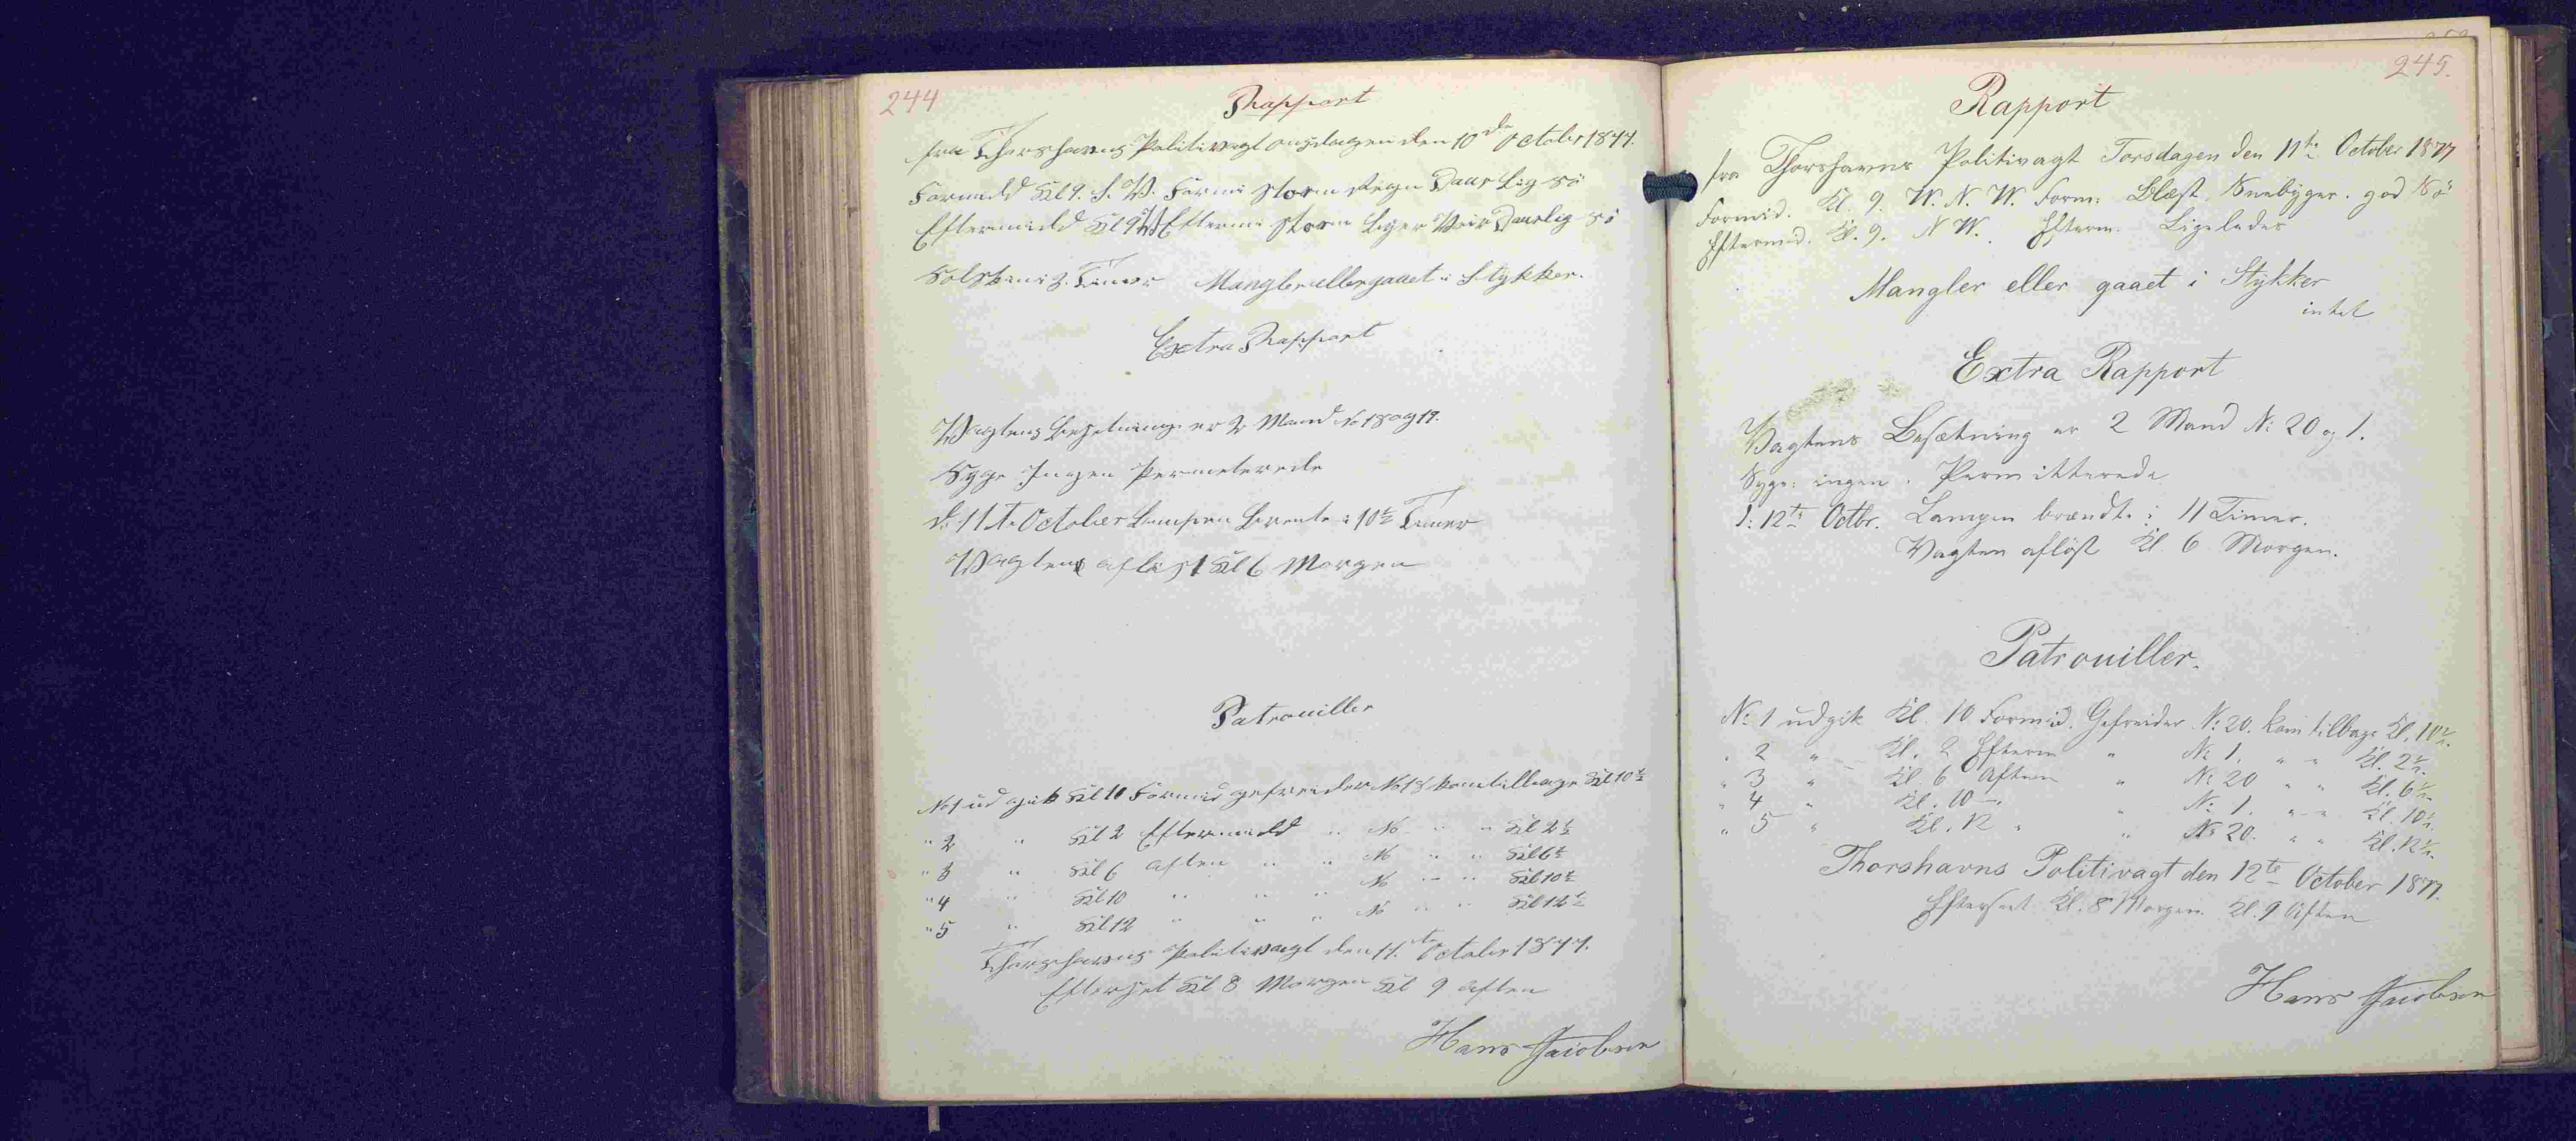 244
Rapport
fra Thorshavns Politivagt onsdagen den 10de October 1877.
Formidd Kl 9. S. W. Formi storm Regn Daarlig Sö
Eftermidd Kl 9 W Eftermi storm Byger Veir Daarlig Sö
Solskin i 3. Timer Mangler eller gaaet i Stykker.
Extra Rapport
Vagtens Besetning er 2 Mand No 18 og 19.
Syge Ingen Permeterede
d: 11te October Lampen Brente i 10½ Timer
Vagten aflöst Kl 6 Morgen
Patrouiller
No 1 ud gik Kl 10 Formid gefreider No 18 kom tilbage Kl 10½
" 2 " Kl 2 Eftermidd " No " " Kl 2½
" 3 " Kl 6 aften " " No " " Kl 6½
" 4 " Kl 10 " " " No " " Kl 10½
" 5 " Kl 12 " " " No " " Kl 12½
Thorshavns Politivagt den 11.te October 1877.
Efterset Kl 8 Morgen Kl 9 aften
Hans Jacobsen
245.
Rapport
fra Thorshavns Politivagt Torsdagen den 11te October 1877
Formid. Kl. 9. W. N. W. Form: Blæst, Snebyger. god Sö
Eftermid. Kl. 9. N W. Efterm. Ligeledes
Mangler eller gaaet i Stykker
intet
Extra Rapport
Vagtens Besætning er 2 Mand No: 20 og 1.
Syge: ingen. Permitterede
d: 12te Octbr. Lampen brændte i 11 Timer.
Vagten aflöst Kl. 6 Morgen.
Patrouiller.
No: 1 udgik Kl. 10 Formid. Gefreider No: 20. kom tilbage Kl. 10½.
" 2 " - Kl. 2 Efterm " No: 1. " - Kl. 2½.
" 3 " Kl. 6 Aften " No: 20 " " Kl. 6½.
" 4 " Kl. 10 - " No: 1. " - " Kl. 10½.
" 5 " Kl. 12 " " No 20. " " Kl. 12½.
Thorshavns Politivagt den 12te October 1877.
Efterset Kl. 8 Morgen. Kl. 9 Aften
Hans Jacobsen